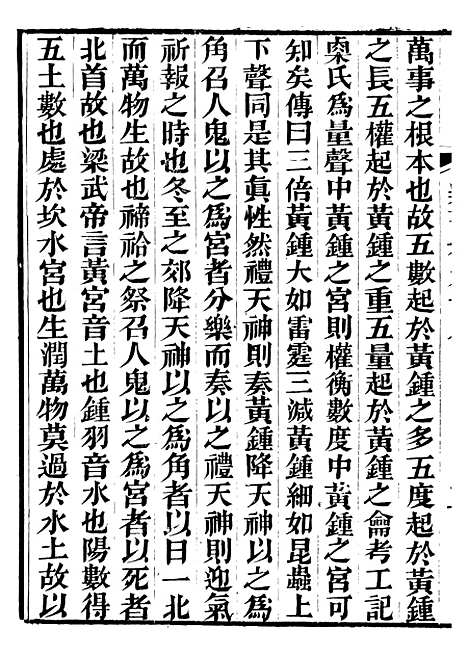 萬事之根本也故五數起於黃鍾之多五度起於黃鍾
之長五權起於黃鍾之重五量起於黃鍾之龠考工記
㮚氏爲量聲中黃鍾之宮則權衡數度中黃鍾之宮可
知矣傳曰三倍黃鍾大如雷霆三減黃鍾細如昆蟲上
下聲同是其眞性然禮天神則奏黃鍾降天神以之爲
角召人鬼以之爲宮者分樂而奏以之禮天神則迎氣
祈報之時也冬至之郊降天神以之爲角者以日一北
而萬物生故也禘祫之祭召人鬼以之爲宮者以死者
北首故也梁武帝言黃宮音土也鍾羽音水也陽數得
五土數也處於坎水宮也生潤萬物莫過於水土故以